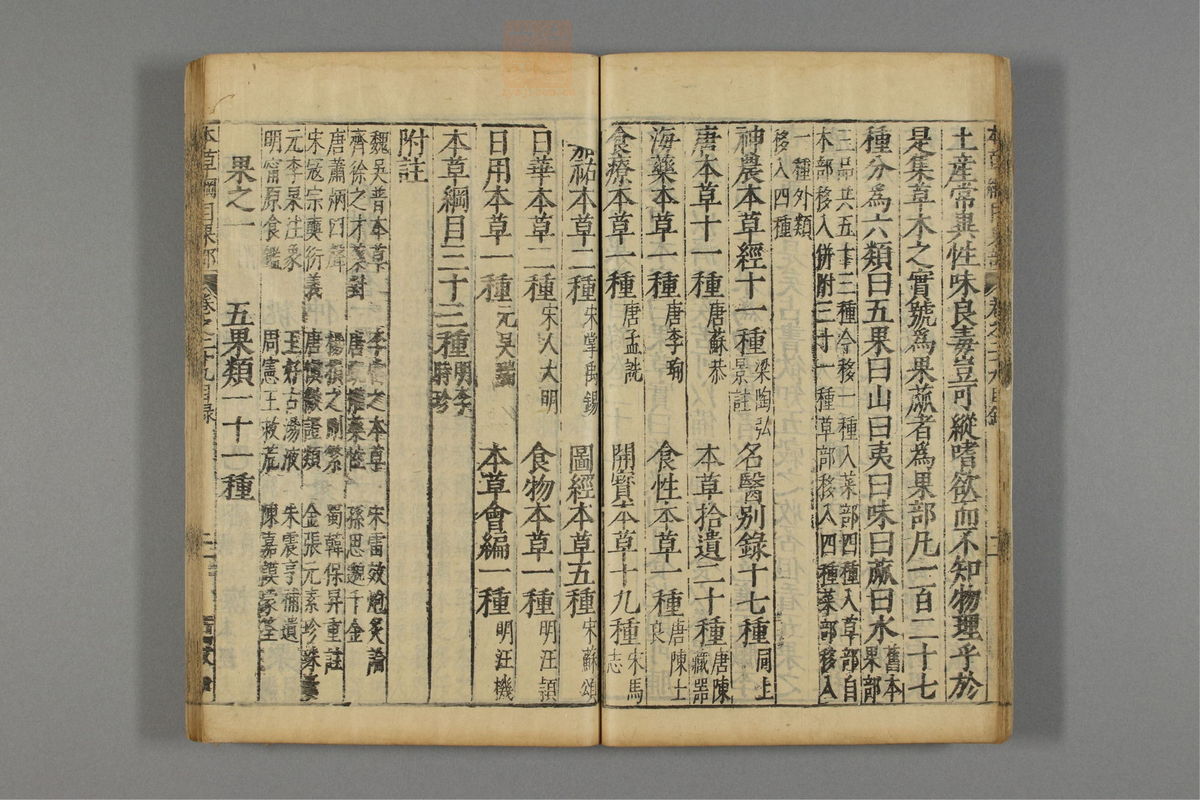 土産常異性味良毒豈可縱嗜欲而不知物理乎於
是集草木之實號為果蓏者為果部凡一百二十七
種分為六類曰五果曰山曰夷曰味曰蓏曰水舊本果部
三品共五十三種今移一種入菜部四種入草部自
木部移入併附三十一種草部移入四種菜部移入
一種外類
移入四種
神農本草經十一種梁陶弘景註 名醫別錄十七種同上
唐本草十一種唐蘇恭 本草拾遺二十種唐陳藏器
海藥本草一種唐李珣 食性本草一種唐陳士良
食療本草一種唐孟詵 開寶本草十九種宋馬志
嘉祐本草二種宋掌禹錫 圖經本草五種宋蘇頌
日華本草二種宋人大明 食物本草一種明汪穎
日用本草一種元吳瑞 本草會編一種明汪機
本草綱目三十三種明李時珍
附註
魏吳普本草 李當之本草 宋雷斅炮炙論
齊徐之才藥對 唐甄權藥性 孫思邈千金
唐蕭炳四聲 楊損之刪繁 蜀韓保昇重註
宋寇宗奭衍義 唐慎微證類 金張元素珍珠囊
元李杲法象 王好古湯液 朱震亨補遺
明甯原食鑑 周憲王救荒 陳嘉謨蒙筌
果之一 五果類一十一種
本草綱目果部 卷之二十九目録